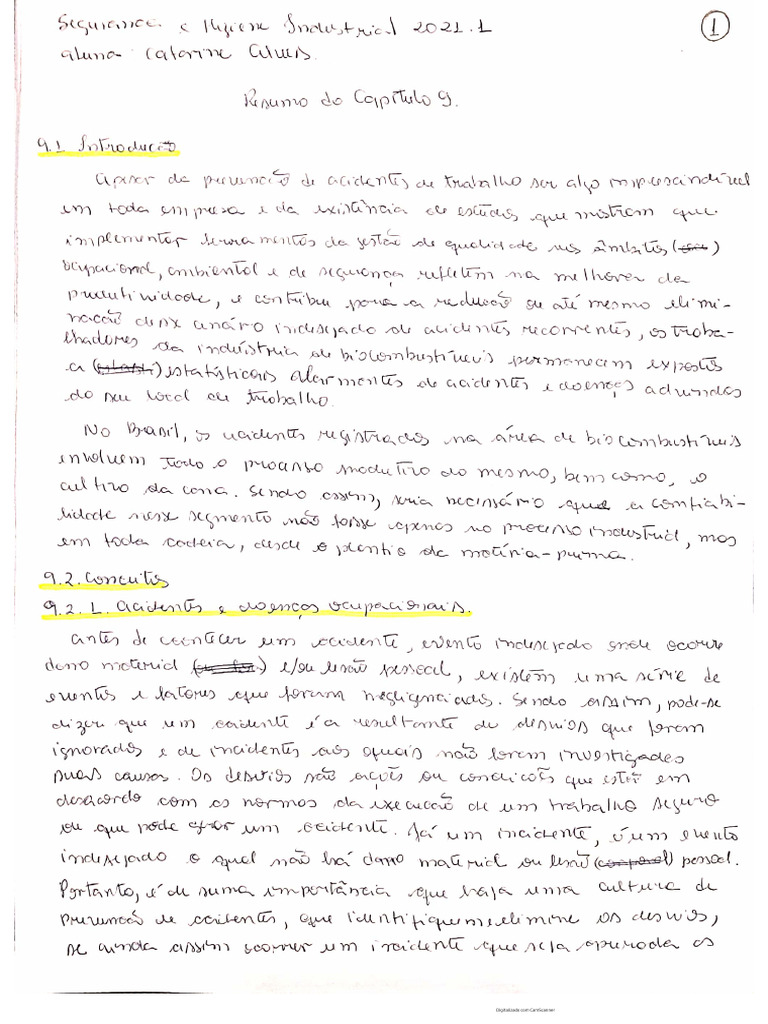 Segurança e Higiene Industrial 2021.1
①
aluna: Catarine Alves.
Resumo do Capítulo 9.
9.1 Introdução
Apesar da prevenção de acidentes de trabalho ser algo imprescindível
em toda empresa e da existência de estudos que mostram que
implementar ferramentos da gestão de qualidade nos âmbitos ( )
ocupacional, ambiental e de segurança refletem na melhora da
produtividade, e contribui para a redução ou até mesmo elimi-
nação desse cenário indesejado de acidentes recorrentes, os traba-
lhadores da indústria de biocombustíveis permanecem expostos
a ( ) estatísticas alarmantes de acidentes e doenças advindas
do seu local de trabalho.
No Brasil, os acidentes registrados na área de biocombustíveis
envolvem todo o processo produtivo do mesmo, bem como, o
cultivo da cana. Sendo assim, seria necessário que a confiabi-
lidade nesse segmento não fosse apenas no processo industrial, mas
em toda cadeia, desde o plantio da matéria-prima.
9.2. Conceitos
9.2.1. Acidentes e doenças ocupacionais.
Antes de acontecer um acidente, evento indesejado onde ocorre
dano material ( ) e/ou lesão pessoal, existem uma série de
eventos e fatores que foram negligenciados. Sendo assim, pode-se
dizer que um acidente é a resultante de desvios que foram
ignorados e de incidentes aos quais não foram investigados
suas causas. Os desvios são ações ou condições que estão em
desacordo com as normas da execução de um trabalho seguro
ou que pode gerar um acidente. Já um incidente, é um evento
indesejado o qual não há dano material ou lesão (corporal) pessoal.
Portanto, é de suma importância que haja uma cultura de
prevenção de acidentes, que identifique e elimine os desvios,
se ainda assim ocorrer um incidente que seja apurada as
Digitalizado com CamScanner